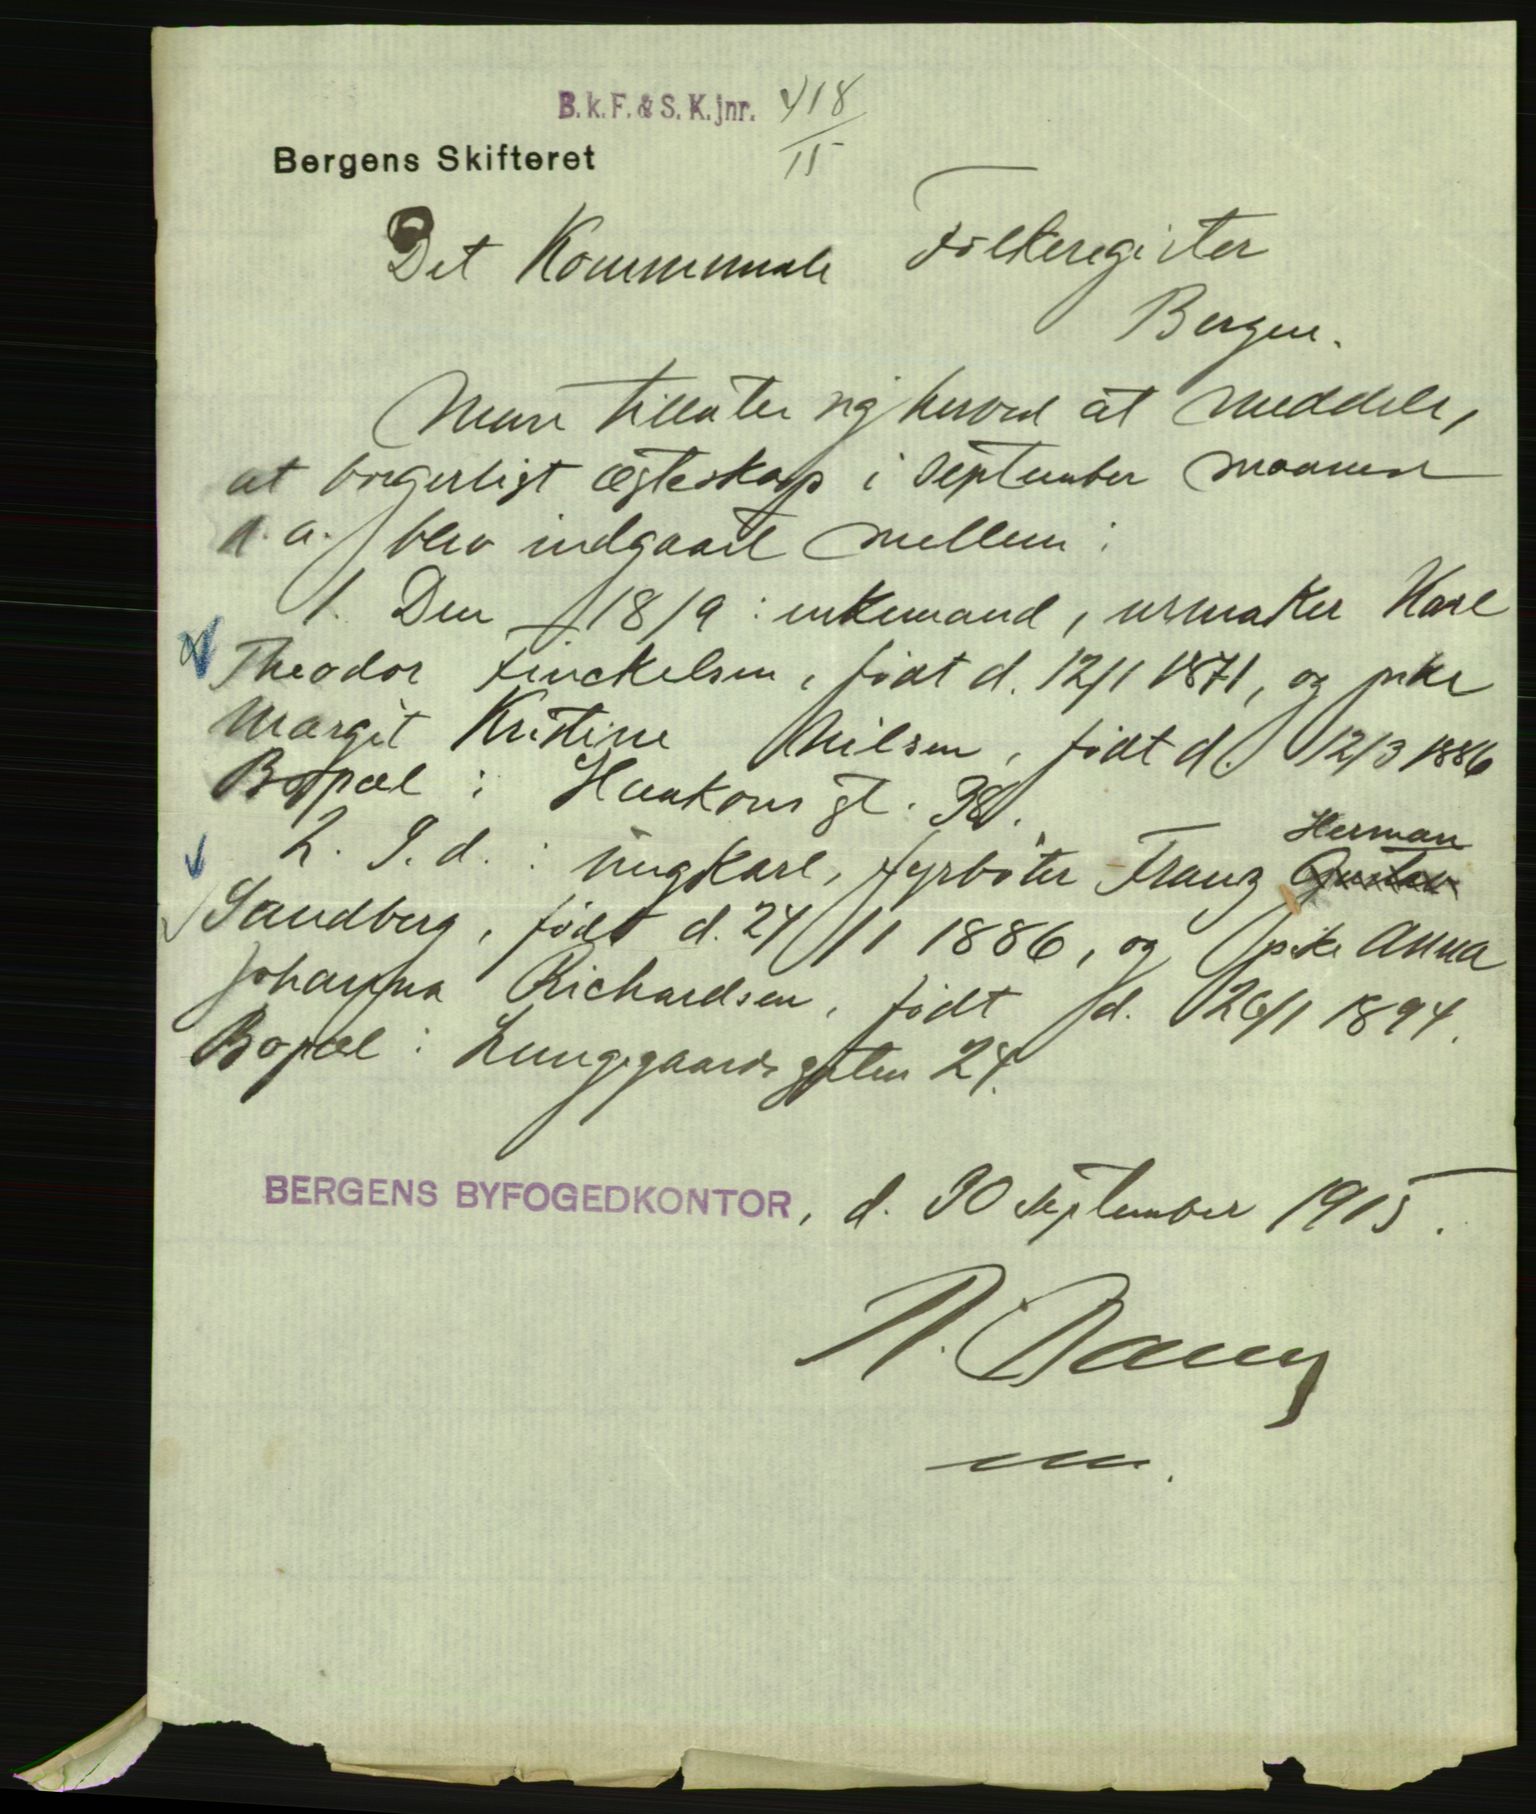 B.k.F. & S.K. jnr. 418/15
Bergens Skifteret
Det Kommunale Folkeregister
Bergen.
Man tillater sig herved at meddele,
at borgerligt ægteskap i september maaned
d.a. blev indgaaet mellem:
1. Den 18/9: enkemand, urmaker Karl
Theodor Finckelsen, født d. 12/1 1871, og pike
Margit Kristine Nilsen, født d. 12/3 1886
Bopæl: Haakons gt. 38.
2. S. d.: ungkarl, fyrbøter Franz Herman Gustav
Sandberg, født d. 24/11 1886, og pike Anna
Johanna Richardsen, født d. 26/1 1894.
Bopæl: Lungegaardsgaten 24.
BERGENS BYFOGEDKONTOR, d. 30 september 1915.